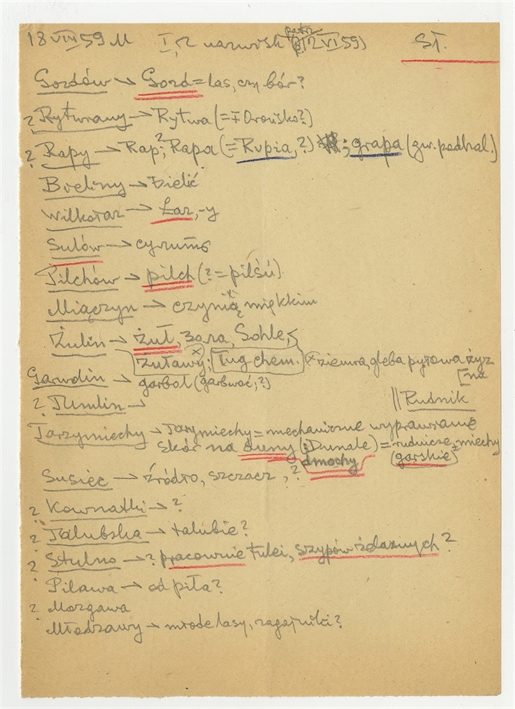 18 VIII 59 M I, 2 nazwisk (patrz 12 VI 59) ST.
Gozdów → Gozd = las, czy bór?
? Rytwiany → Rytwa (= + Drowisko?)
? Rapy → Rap; ? Rapa (= Rupia, ?) ; grapa (gw. podhal.)
Breliny → Dzielić
Wilkołaz → Łaz, -y
Sulów →
Pilchów → pilch (? = pilśń)
Miączyn → czynią miękkim
Żulin → żuł, Zora, Sohle,
Żuławy; Ług chem. x ziemia, gleba pyłowa żyz
[na
Garwolin → garbol (garbować, ?)
? Tumlin →
|| Rudnik
Tarzymiechy → Tarzymiechy = mechaniczne wyprawianie
skór na dumy (Dunale) = rudnicze, miechy
dmochy (garskie)?
Susiec → źródło, szczacz, ?
? Kownatki → ?
? Talubska → talubie?
? Stulno → ? pracownie tulei, szypów żelaznych?
Pilawa → od piła?
? Mozgawa
Młodzawy → młode lasy, zagajniki?